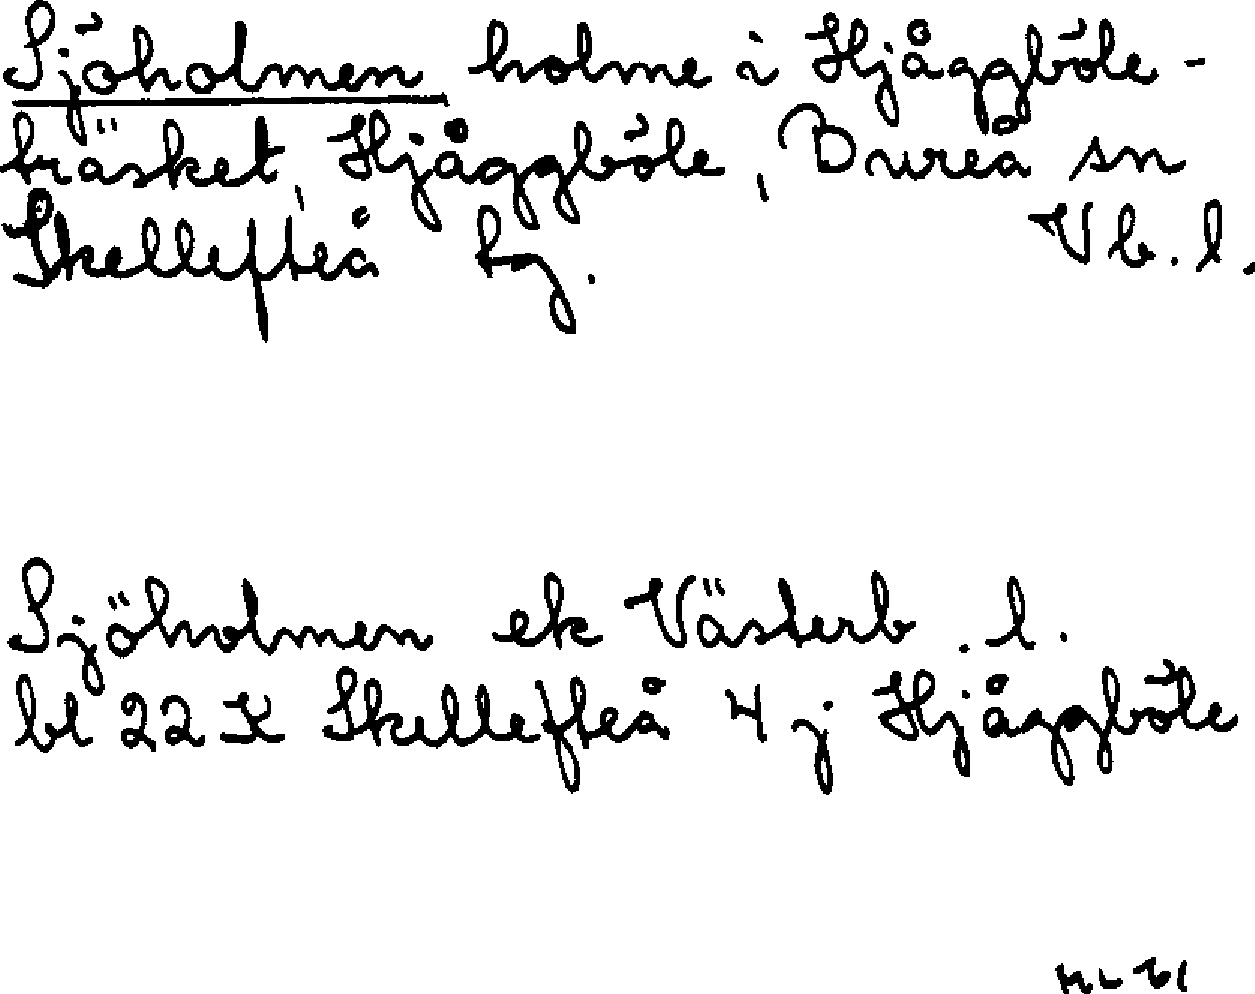 Sjöholmen holme i Hjåggböle-
träsket, Hjåggböle, Bureå sn
Skellefteå tg. Vb. l.
Sjöholmen ek Västerb. l.
bl 22 K Skellefteå 4 j Hjåggböle